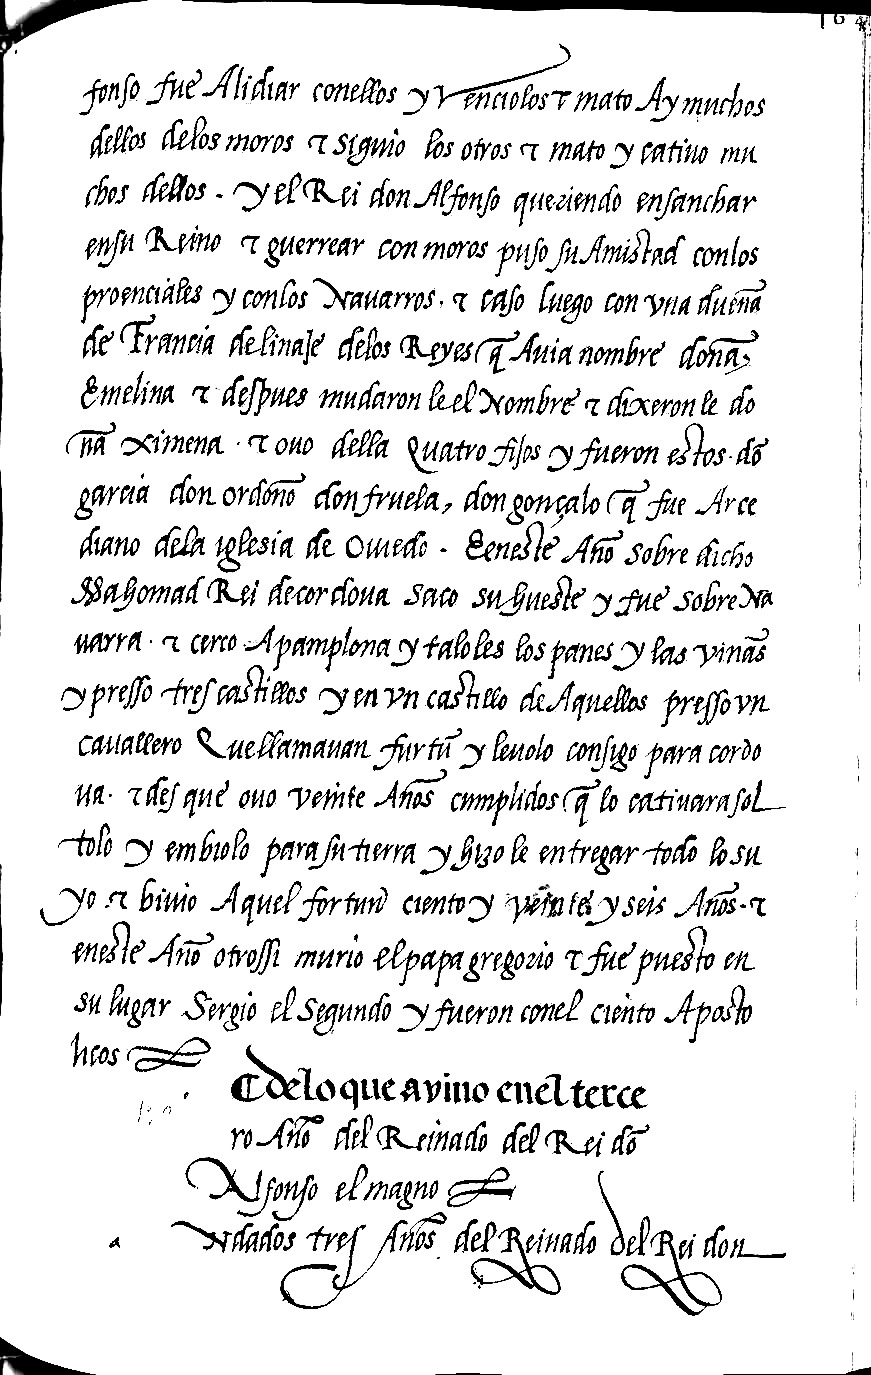 164
fonso fue Alidiar conellos y venciolos τ mato Ay muchos
dellos delos moros τ siguio los otros τ mato y catiuo mu
chos dellos. y el Rei don Alfonso queriendo ensanchar
ensu Reino τ guerrear con moros puso su Amistad conlos
proenciales y conlos Nauarros. τ caso luego con vna dueña
de Francia delinaje delos Reyes q̃ Auia nombre doña
Emelina τ despues mudaron le el Nombre τ dixeron le do
ña Ximena. τ ouo della Quatro fijos y fueron estos. dõ
garcia don ordoño don fruela, don gonçalo q̃ fue Arce
diano dela iglesia de Ouiedo. Eeneste Año sobre dicho
Mahomad Rei decordoua saco su hueste y fue sobre Na
uarra. τ cerco Apamplona y taloles los panes y las viñas
y presso tres castillos y en vn castillo de Aquellos presso vn
cauallero Quellamauan furtũ y leuolo consigo para cordo
ua. τ des que ouo veinte Años cumplidos q̃ lo catiuara sol
tolo y embiolo para su tierra y hizo le entregar todo lo su
yo. τ biuio Aquel fortun ciento y veinte y seis Años. τ
eneste Año otrossi murio el papa gregorio τ fue puesto en
su lugar Sergio el segundo y fueron conel ciento Aposto
licos
¶ delo que avino enel terce
ro Año del Reinado del Rei dõ
Alfonso el magno
a Ndados tres Años del Reinado del Rei don